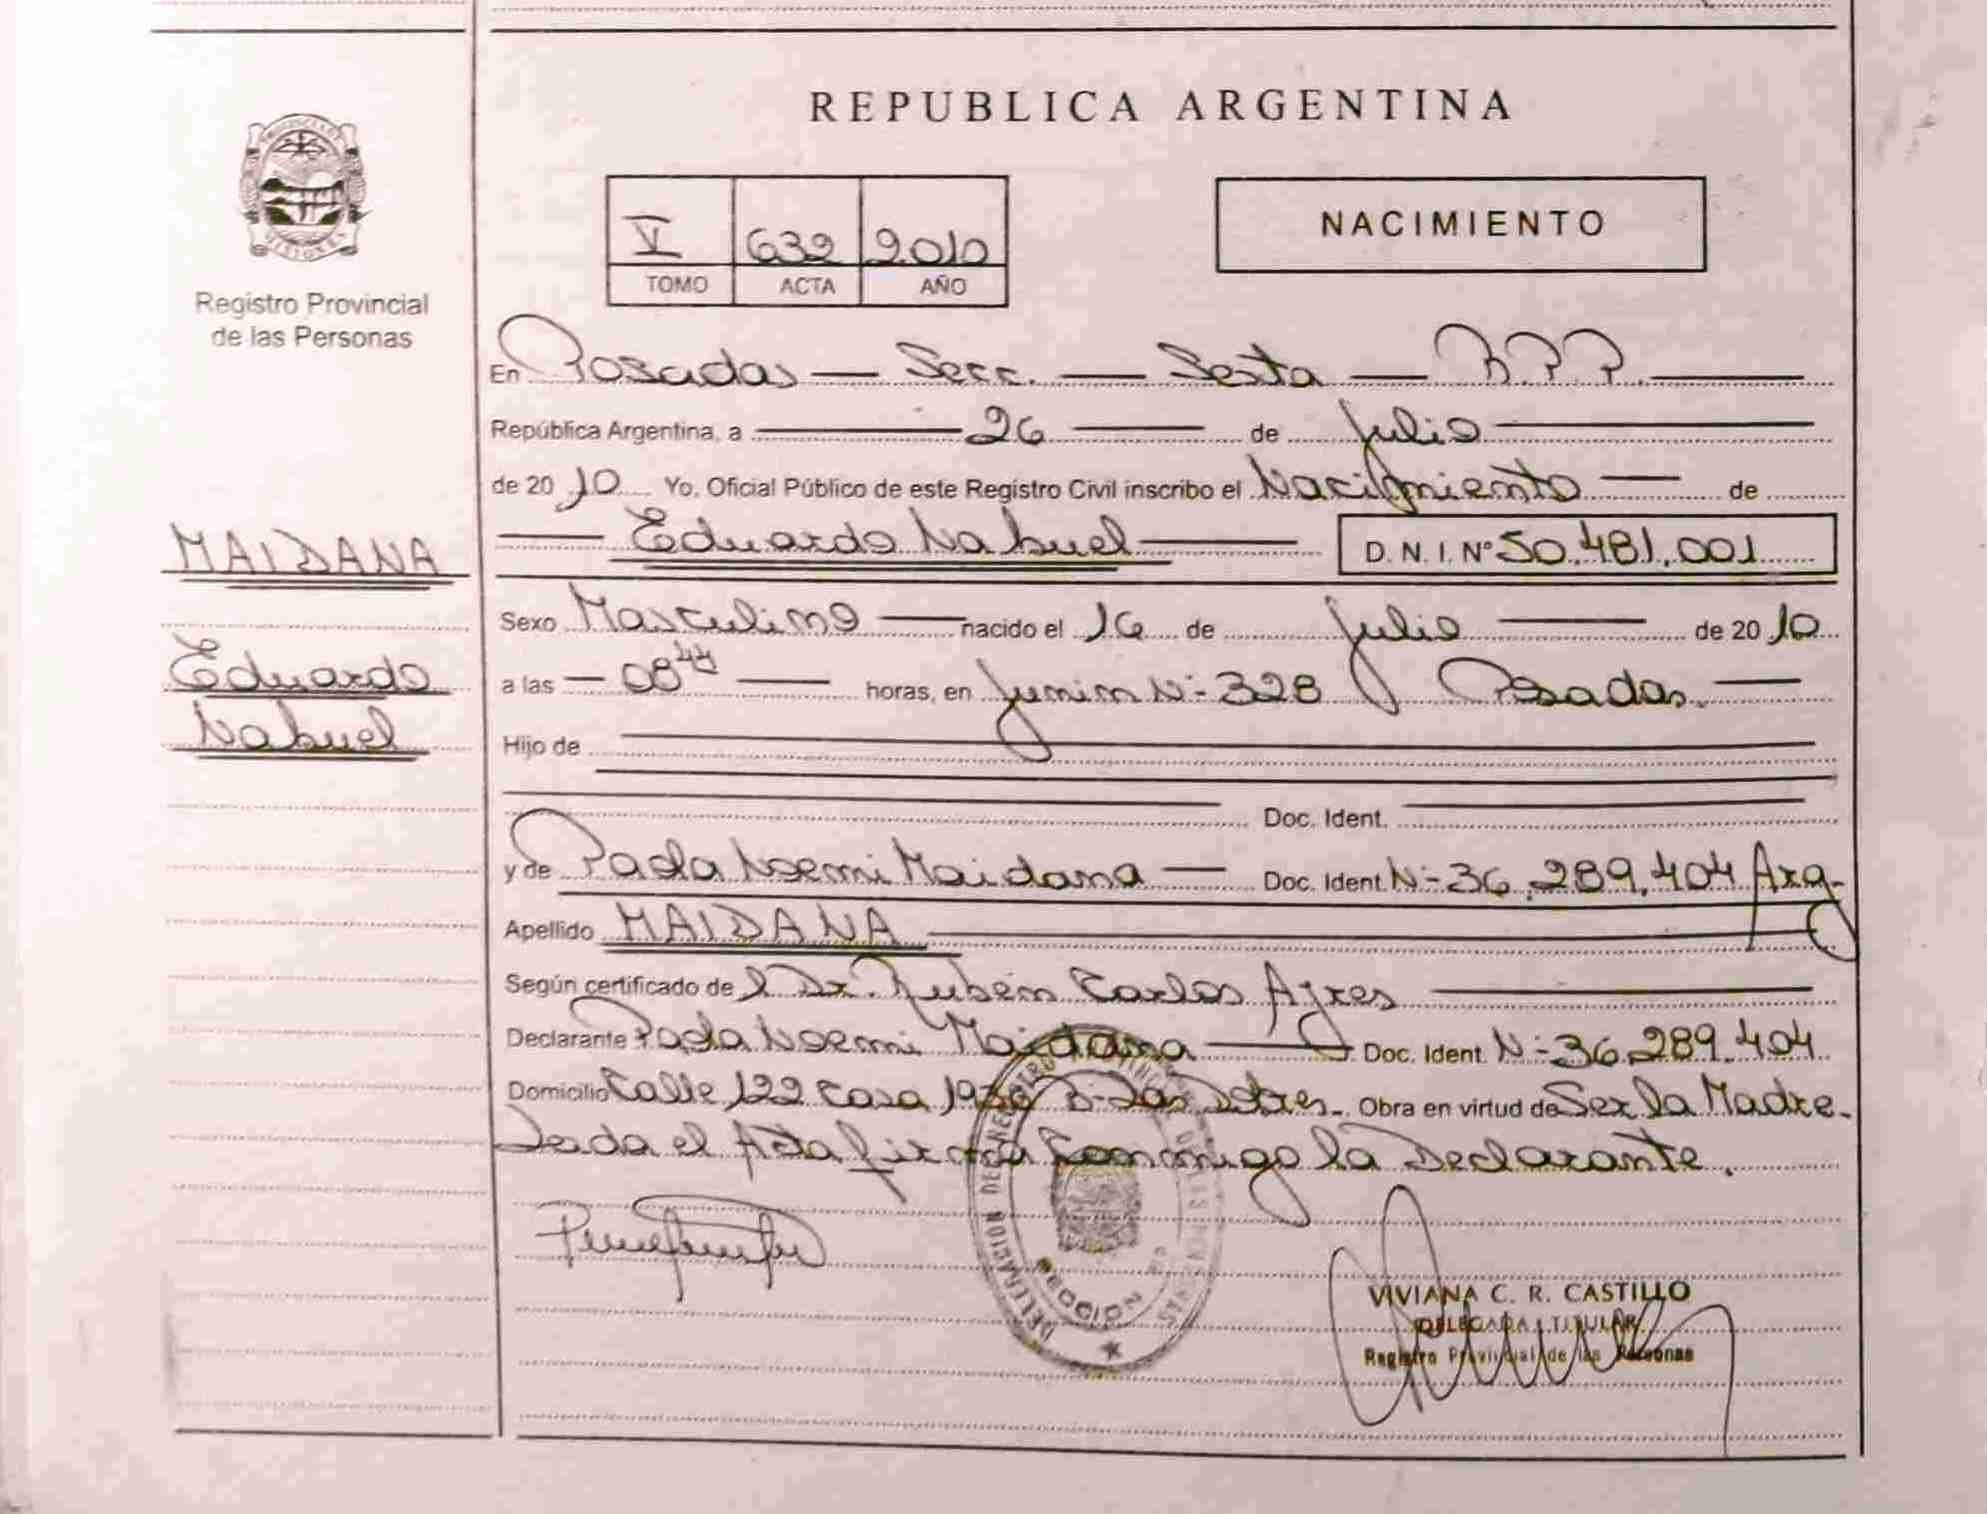 REPUBLICA ARGENTINA
MISIONES
Registro Provincial
de las Personas
V 632 2010
TOMO ACTA AÑO
NACIMIENTO
En Posadas — Secc. — Sexta — R.P.P.
República Argentina, a 26 de Julio
de 2010 Yo, Oficial Público de este Registro Civil inscribo el Nacimiento de
Eduardo Nahuel D. N. I. Nº 50.481.001
MAIDANA
Eduardo
Nahuel
Sexo Masculino nacido el 16 de Julio de 2010
a las 08 44 horas, en Junin Nº 328 Posadas.
Hijo de
Doc. Ident.
y de Paola Noemi Maidana Doc. Ident. Nº 36.289.404 Arg.
Apellido MAIDANA
Según certificado del Dr. Rubén Carlos Ayres
Declarante Paola Noemi Maidana Doc. Ident. Nº 36.289.404
Domicilio Calle 122 Casa Bº Las Obra en virtud de Ser la Madre.
Leida el Acta firma conmigo la Declarante.
DELEGACION DE
SECCION
VIVIANA C. R. CASTILLO
DELEGADA TITULAR
Registro Provincial de las Personas